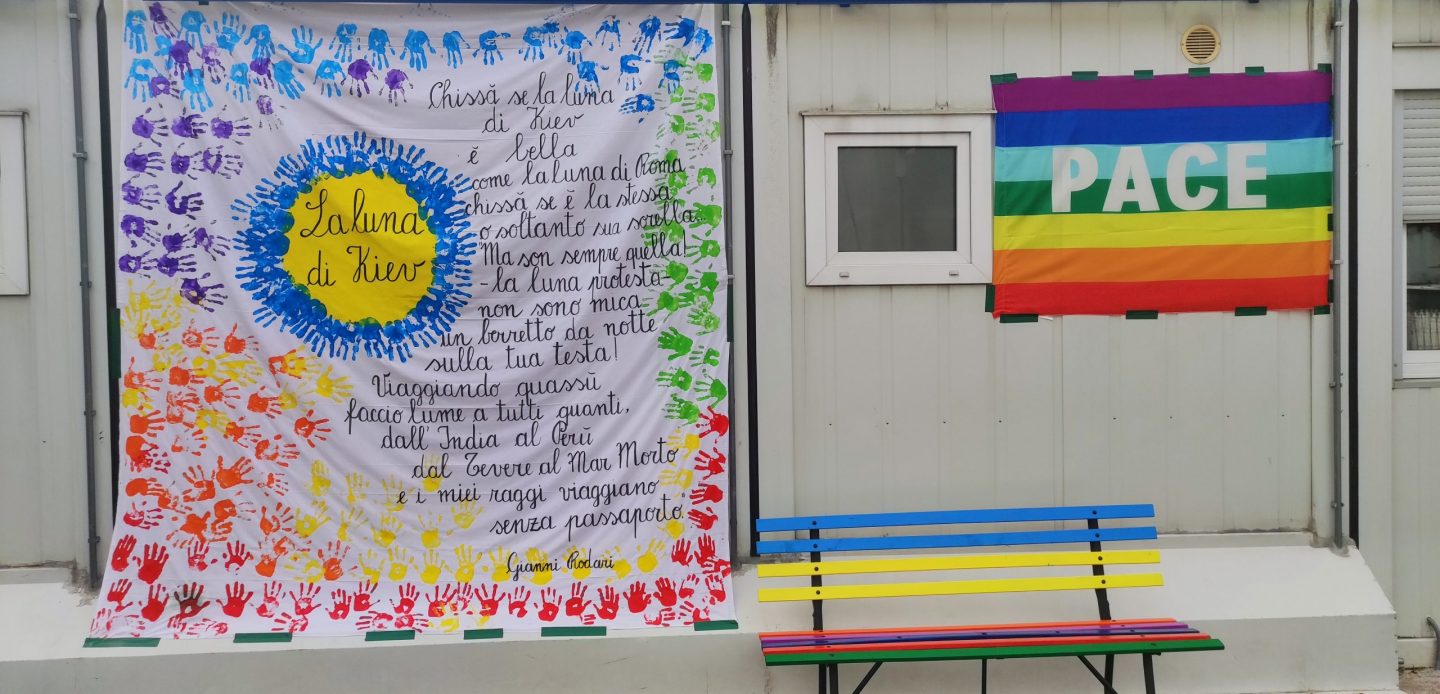 La luna
di Kiev
Chissă se la luna
di Kiev
ĕ bella
come la luna di Roma
chissă se ĕ la stessa
o soltanto sua sorella...
"Ma son sempre quella!
-la luna protesta-
non sono mica
un berretto da notte
sulla tua testa!
Viaggiando quassŭ
faccio lume a tutti quanti,
dall'India al Perŭ
dal Tevere al Mar Morto
e i miei raggi viaggiano
senza passaporto".
Gianni Rodari
PACE